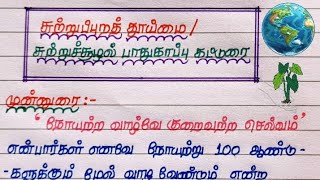 சுற்றுப்புறத் தூய்மை /
சுற்றுச்சூழல் பாதுகாப்பு கட்டுரை
முன்னுரை :-
" நோயற்ற வாழ்வே குறைவற்ற செல்வம் "
என்பார்கள் எனவே நோயற்று 100 ஆண்டு -
- களுக்கும் மேல் வாழ வேண்டும் என்ற